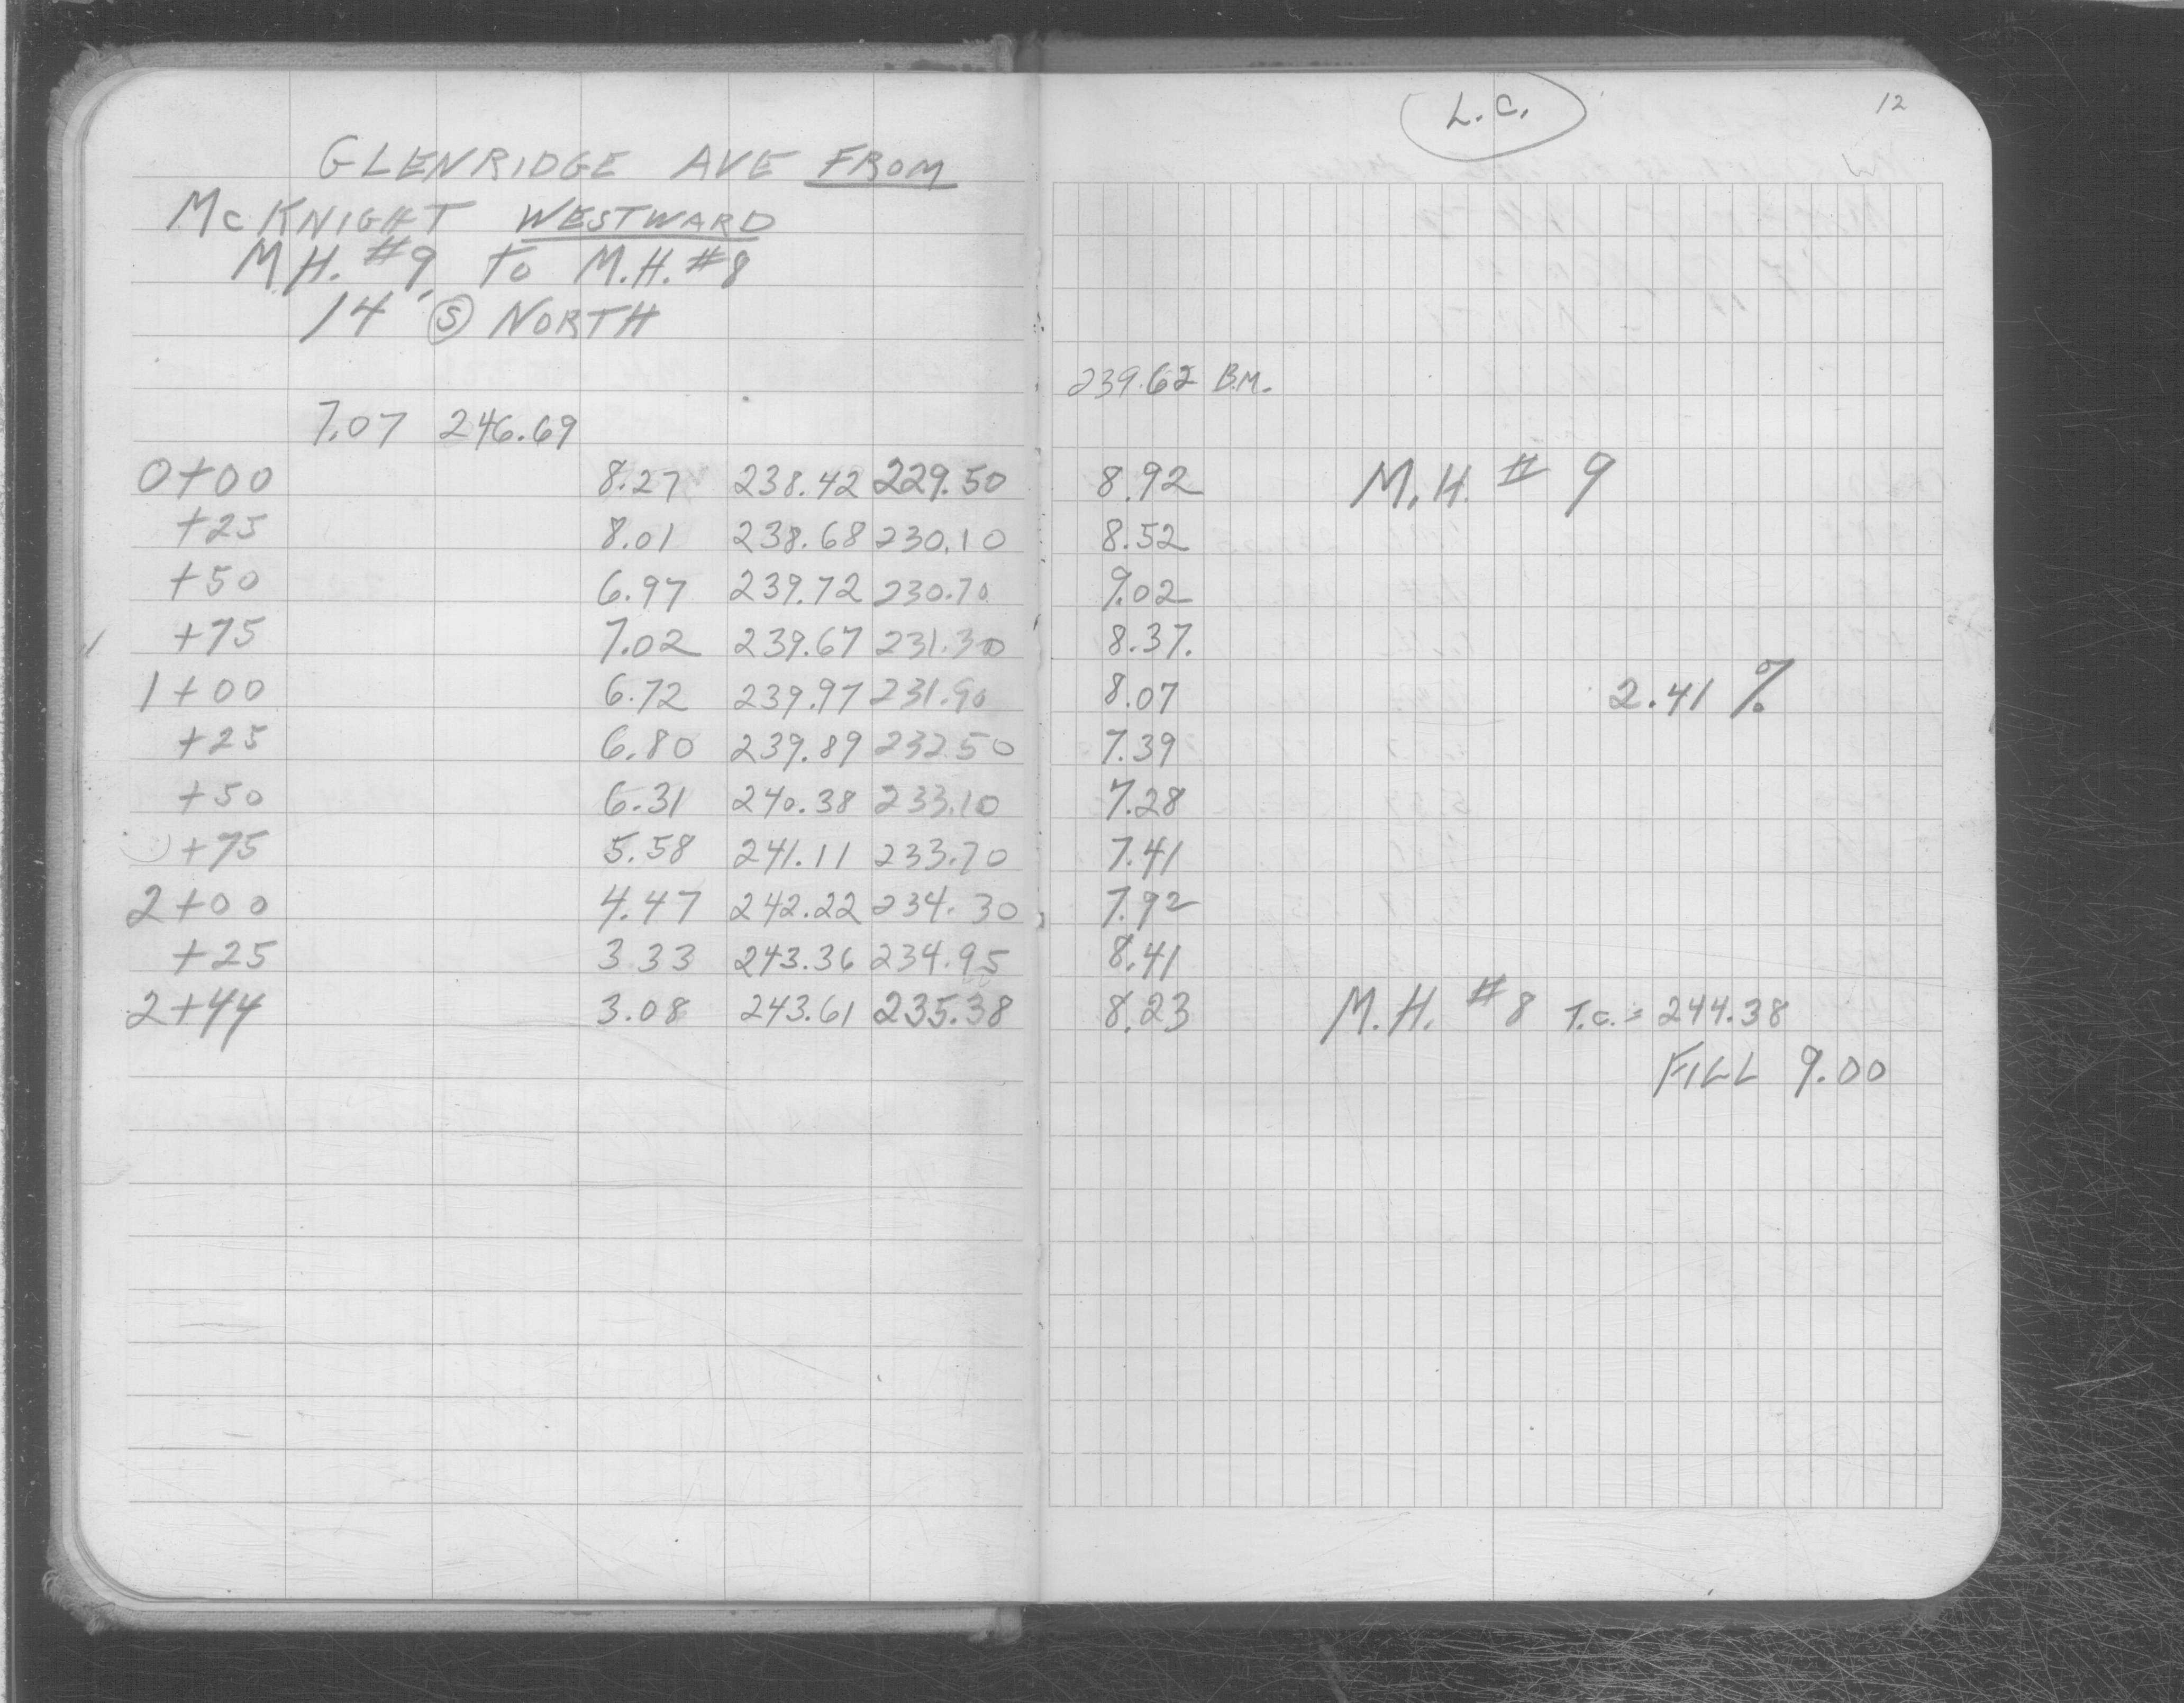 GLENRIDGE AVE FROM
McKNIGHT WESTWARD
M.H. #9 To M.H. #8
14' Ⓢ NORTH
7.07 246.69
0+00 8.27 238.42 229.50
+25 8.01 238.68 230.10
+50 6.97 239.72 230.70
+75 7.02 239.67 231.30
1+00 6.72 239.97 231.90
+25 6.80 239.89 232.50
+50 6.31 240.38 233.10
+75 5.58 241.11 233.70
2+00 4.47 242.22 234.30
+25 3.33 243.36 234.95
2+44 3.08 243.61 235.38
L.C.
12
239.62 B.M.
8.92 M.H. # 9
8.52
9.02
8.37.
8.07 2.41 %
7.39
7.28
7.41
7.92
8.41
8.23 M.H. #8 T.C. = 244.38
FILL 9.00